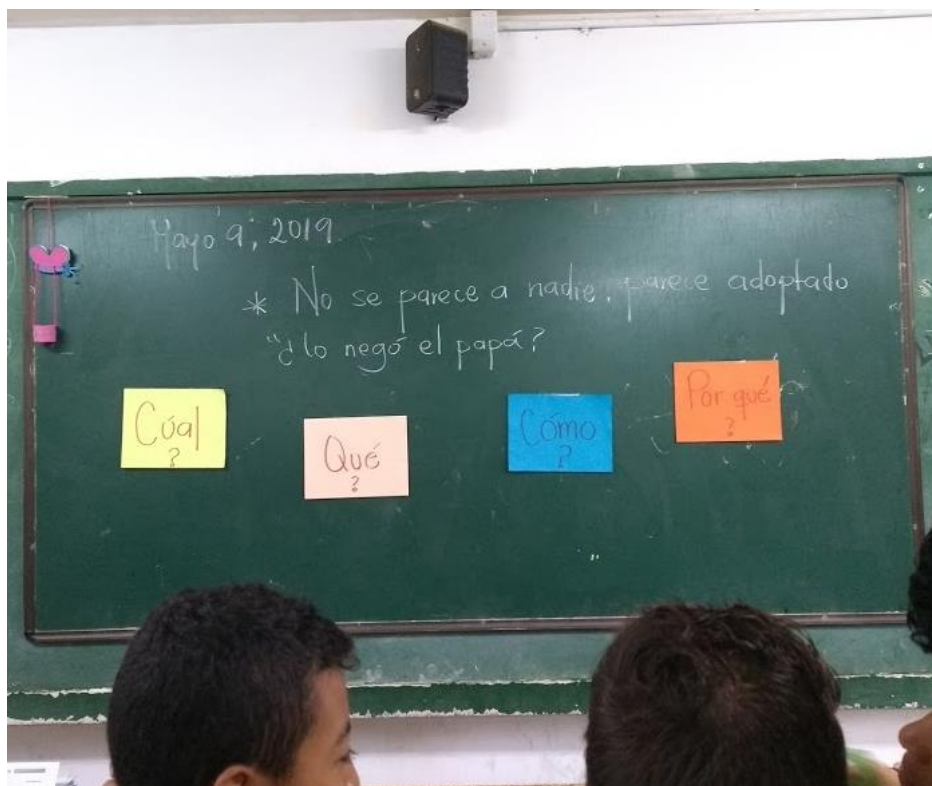 Mayo 9, 2019
* No se parece a nadie, parece adoptado
"¿lo negó el papá?
Cúal
?
Qué
?
Cómo
?
Por qué
?